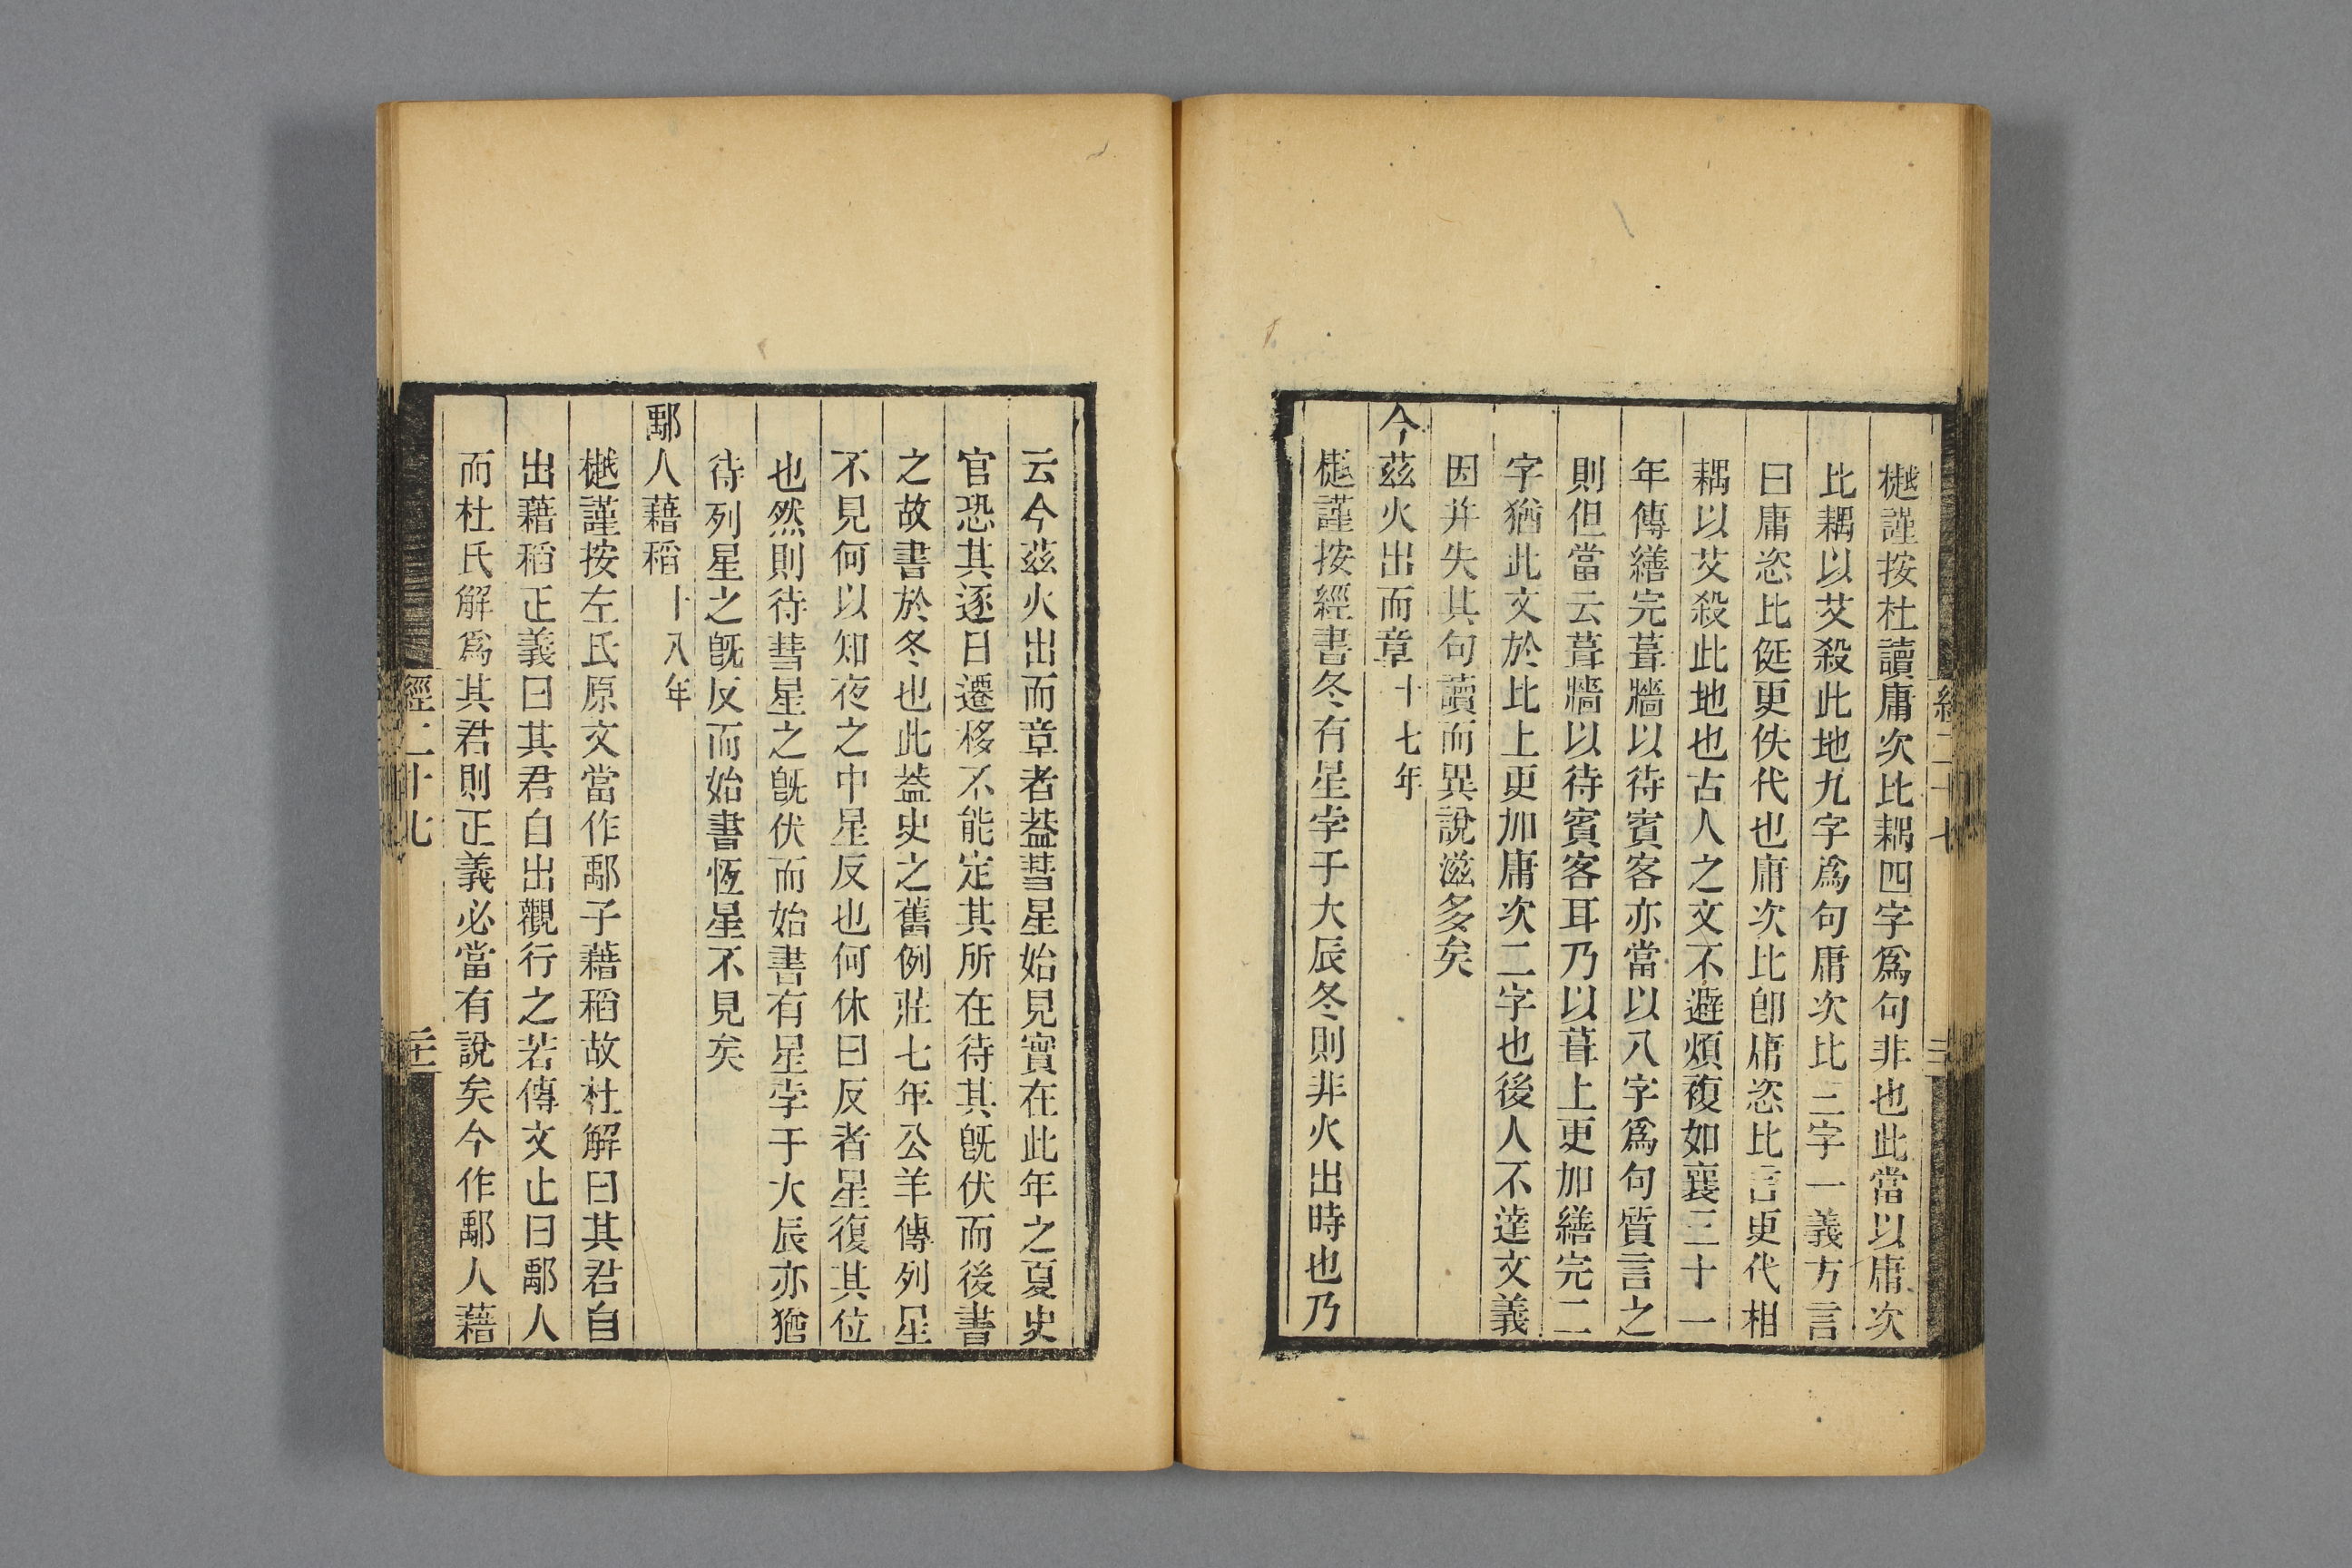 樾謹按杜讀庸次比耦四字爲句非也此當以庸次
比耦以艾殺此地九字爲句庸次比三字一義方言
曰庸恣比侹更佚代也庸次比卽庸恣比言更代相
耦以艾殺此地也古人之文不避煩複如襄三十一
年傳繕完葺牆以待賓客亦當以八字爲句質言之
則但當云葺牆以待賓客耳乃以葺上更加繕完二
字猶此文於比上更加庸次二字也後人不達文義
因并失其句讀而異說滋多矣
今茲火出而章十七年
樾謹按經書冬有星孛于大辰冬則非火出時也乃
云今茲火出而章者蓋彗星始見實在此年之夏史
官恐其逐日遷移不能定其所在待其旣伏而後書
之故書於冬也此蓋史之舊例莊七年公羊傳列星
不見何以知夜之中星反也何休曰反者星復其位
也然則待彗星之旣伏而始書有星孛于大辰亦猶
待列星之旣反而始書恆星不見矣
鄅人藉稻十八年
樾謹按左氏原文當作鄅子藉稻故杜解曰其君自
出藉稻正義曰其君自出觀行之若傳文止曰鄅人
而杜氏解爲其君則正義必當有說矣今作鄅人藉
經二十七